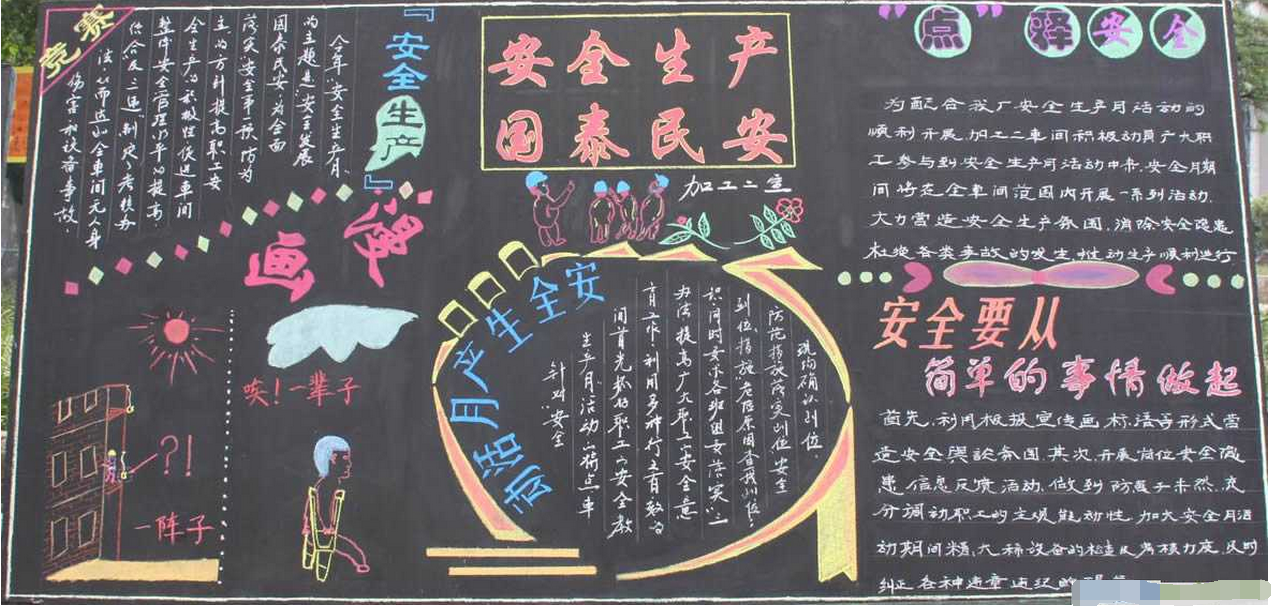 竞赛
『安全生产』
今年"安全生产月"
的主题是"安全发展
国泰民安"为全面
落实"安全第一预防为
主"的方针提高职工安
全生产的积极性.促进车间
整体安全管理水平的提高.
结合反三违,制定了考核办
法.从而达到全车间无人身
伤害和设备事故.
漫画
唉!一辈子
?!
一阵子
安全生产
国泰民安
加工二
安全生产月活动
针对"安全
生产月活动"将与车
间首先抓好职工的安全教
育工作.利用多种行之有效的
办法提高广大职工的安全意
识.同时要求各班组要落实"三
到位"措施"危险原因查找到位.
防范措施落实到位.安全
现场确认到位.
"点"择安全
为配合我厂安全生产月活动的
顺利开展.加工二车间积极动员广大职
工参与到安全生产月活动中来.安全月期
间将在全车间范围内开展一系列活动.
大力营造安全生产氛围,消除安全隐患
杜绝各类事故的发生,推动生产顺利进行
安全要从
简单的事情做起
首先,利用板报宣传画,标语等形式营
造安全舆论氛围.其次,开展岗位安全隐
患信息反馈活动,做到防患于未然.充
分调动职工的主观能动性.加大安全月活
动期间精,大稀设备的检查及考核力度,及时
纠正各种违章违纪的现象